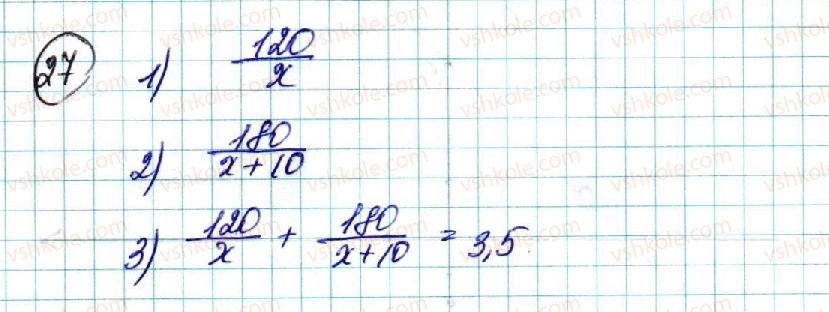 27 1) 120/x
2) 180/(x+10)
3) 120/x + 180/(x+10) = 3,5
vshkole.com